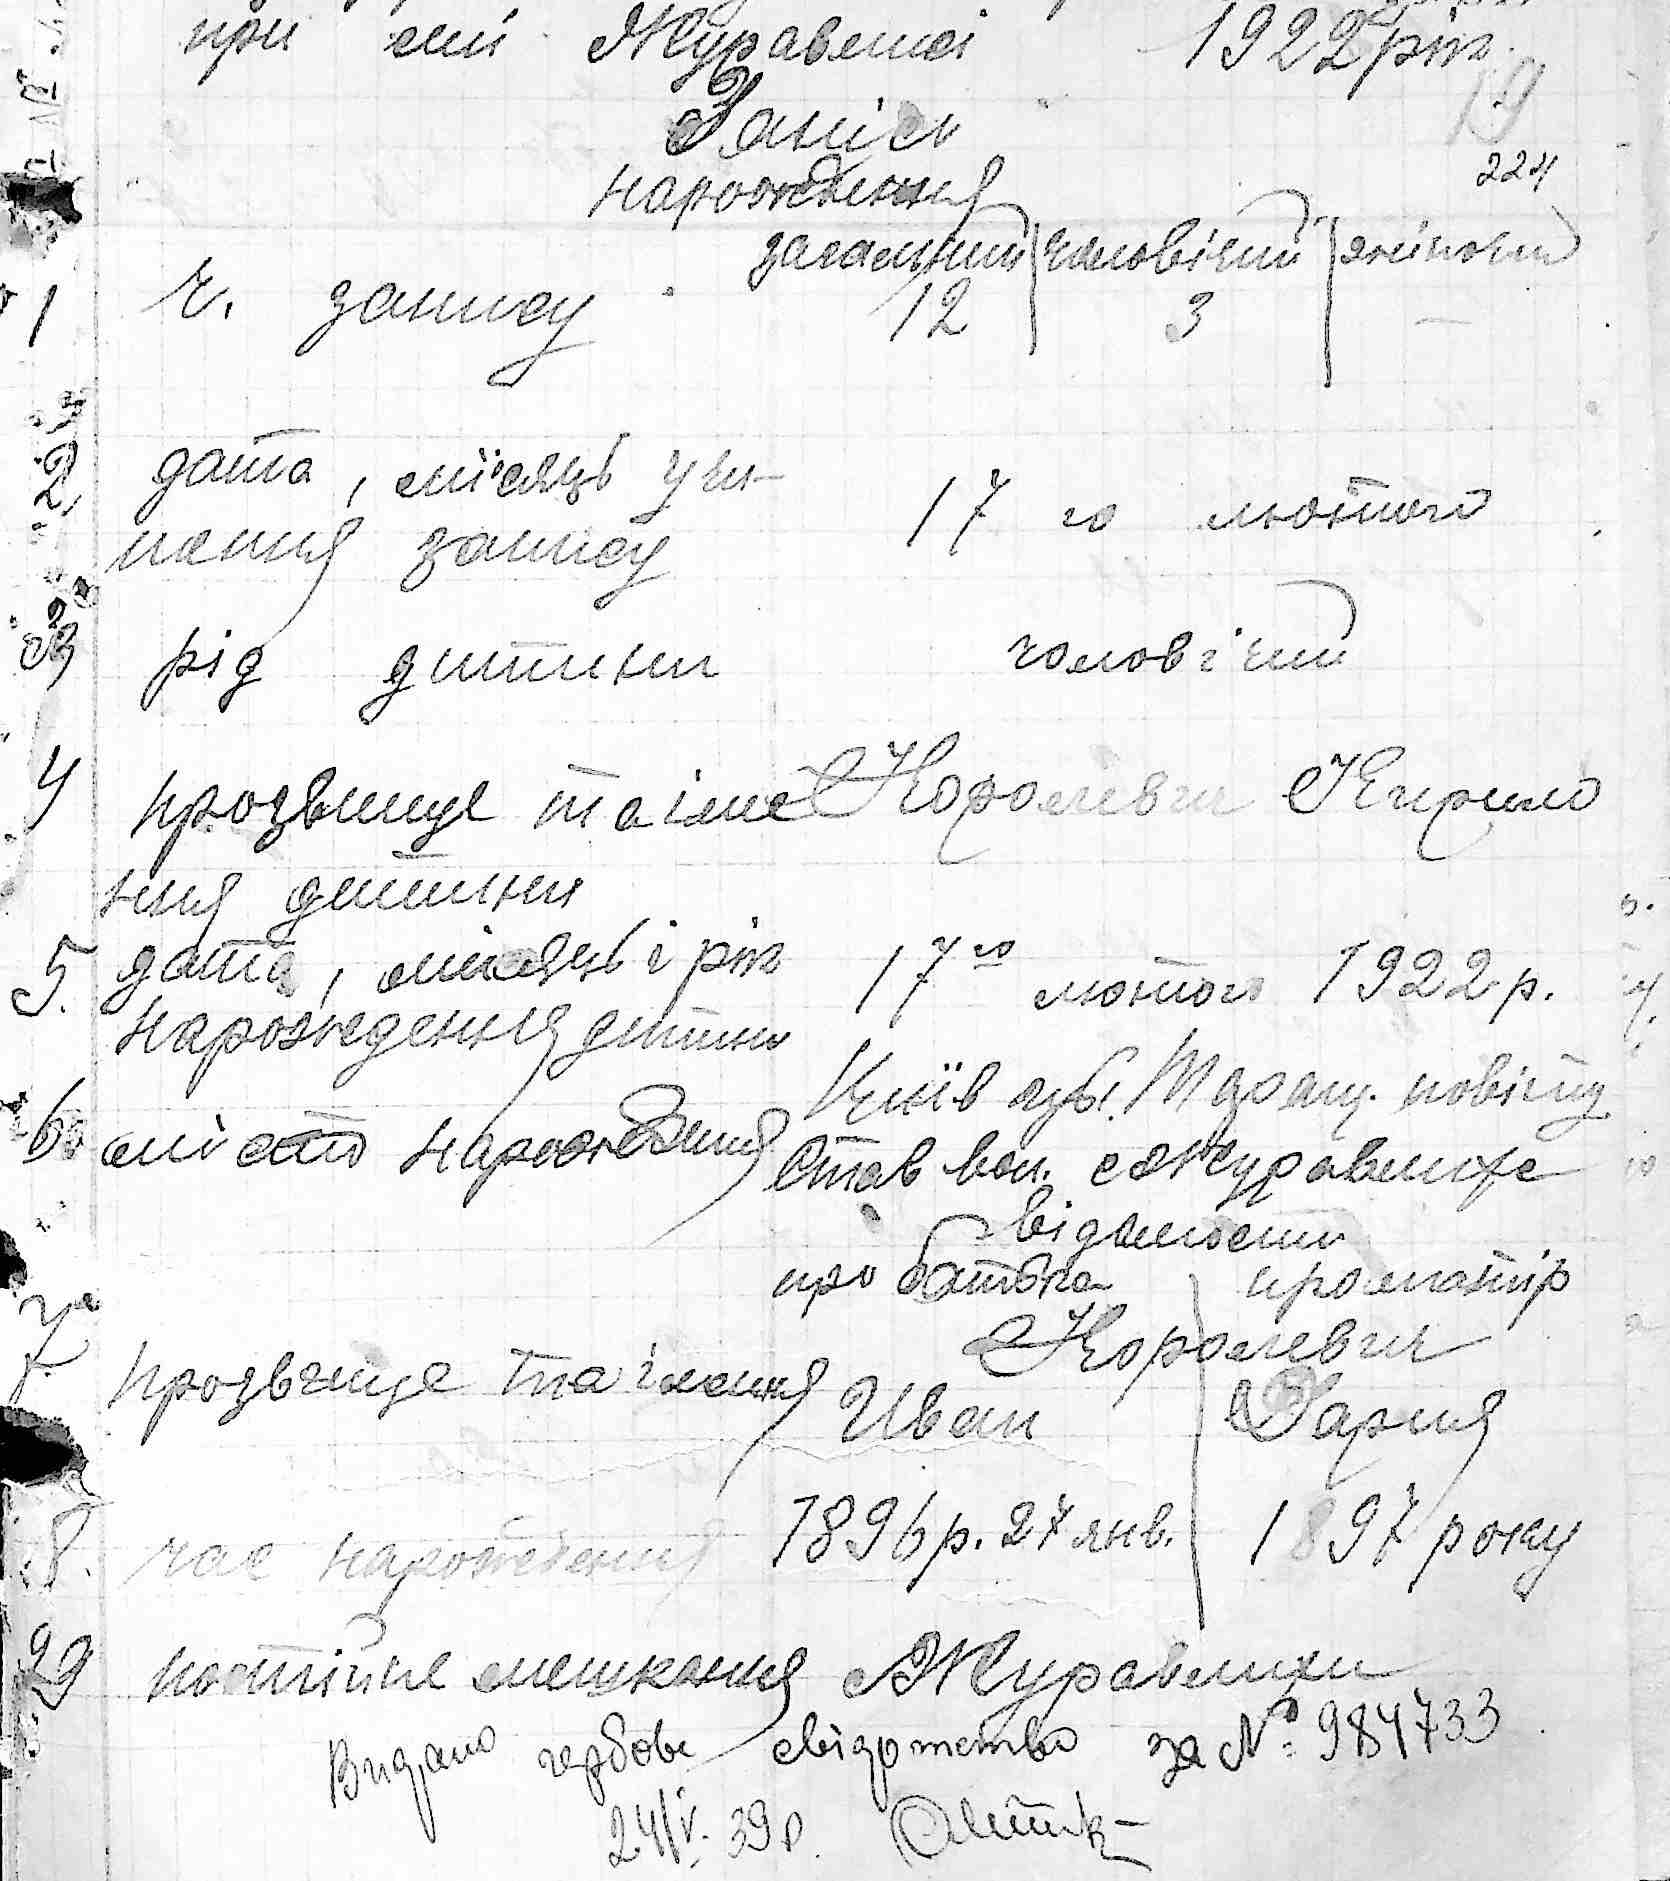 при сіл Журавлисі 1922 рік
19
Запісь
224
народження
загальний чоловічий жіночий
1 ч. запису 12 3 —
2 дата, місяць учи-
нення запису 17 го лютого
3 рід дитини чоловічий
4 прозвище та іме Королевич Кирило
ння дитини
5. дата, місяць і рік 17го лютого 1922 р.
народження дитини
Київ губ. Таращ. повіту
6 місто народження Став вол. с Журавлихе
відомости
про батька про матір
Королевич
7. прозвище та імення Иван Дария
8. час народження 1896 р. 27 янв. 1897 року
9 постійне мешкання Журавлихи
Видано гербове свідотство за № 984733
24/V. 39 р.